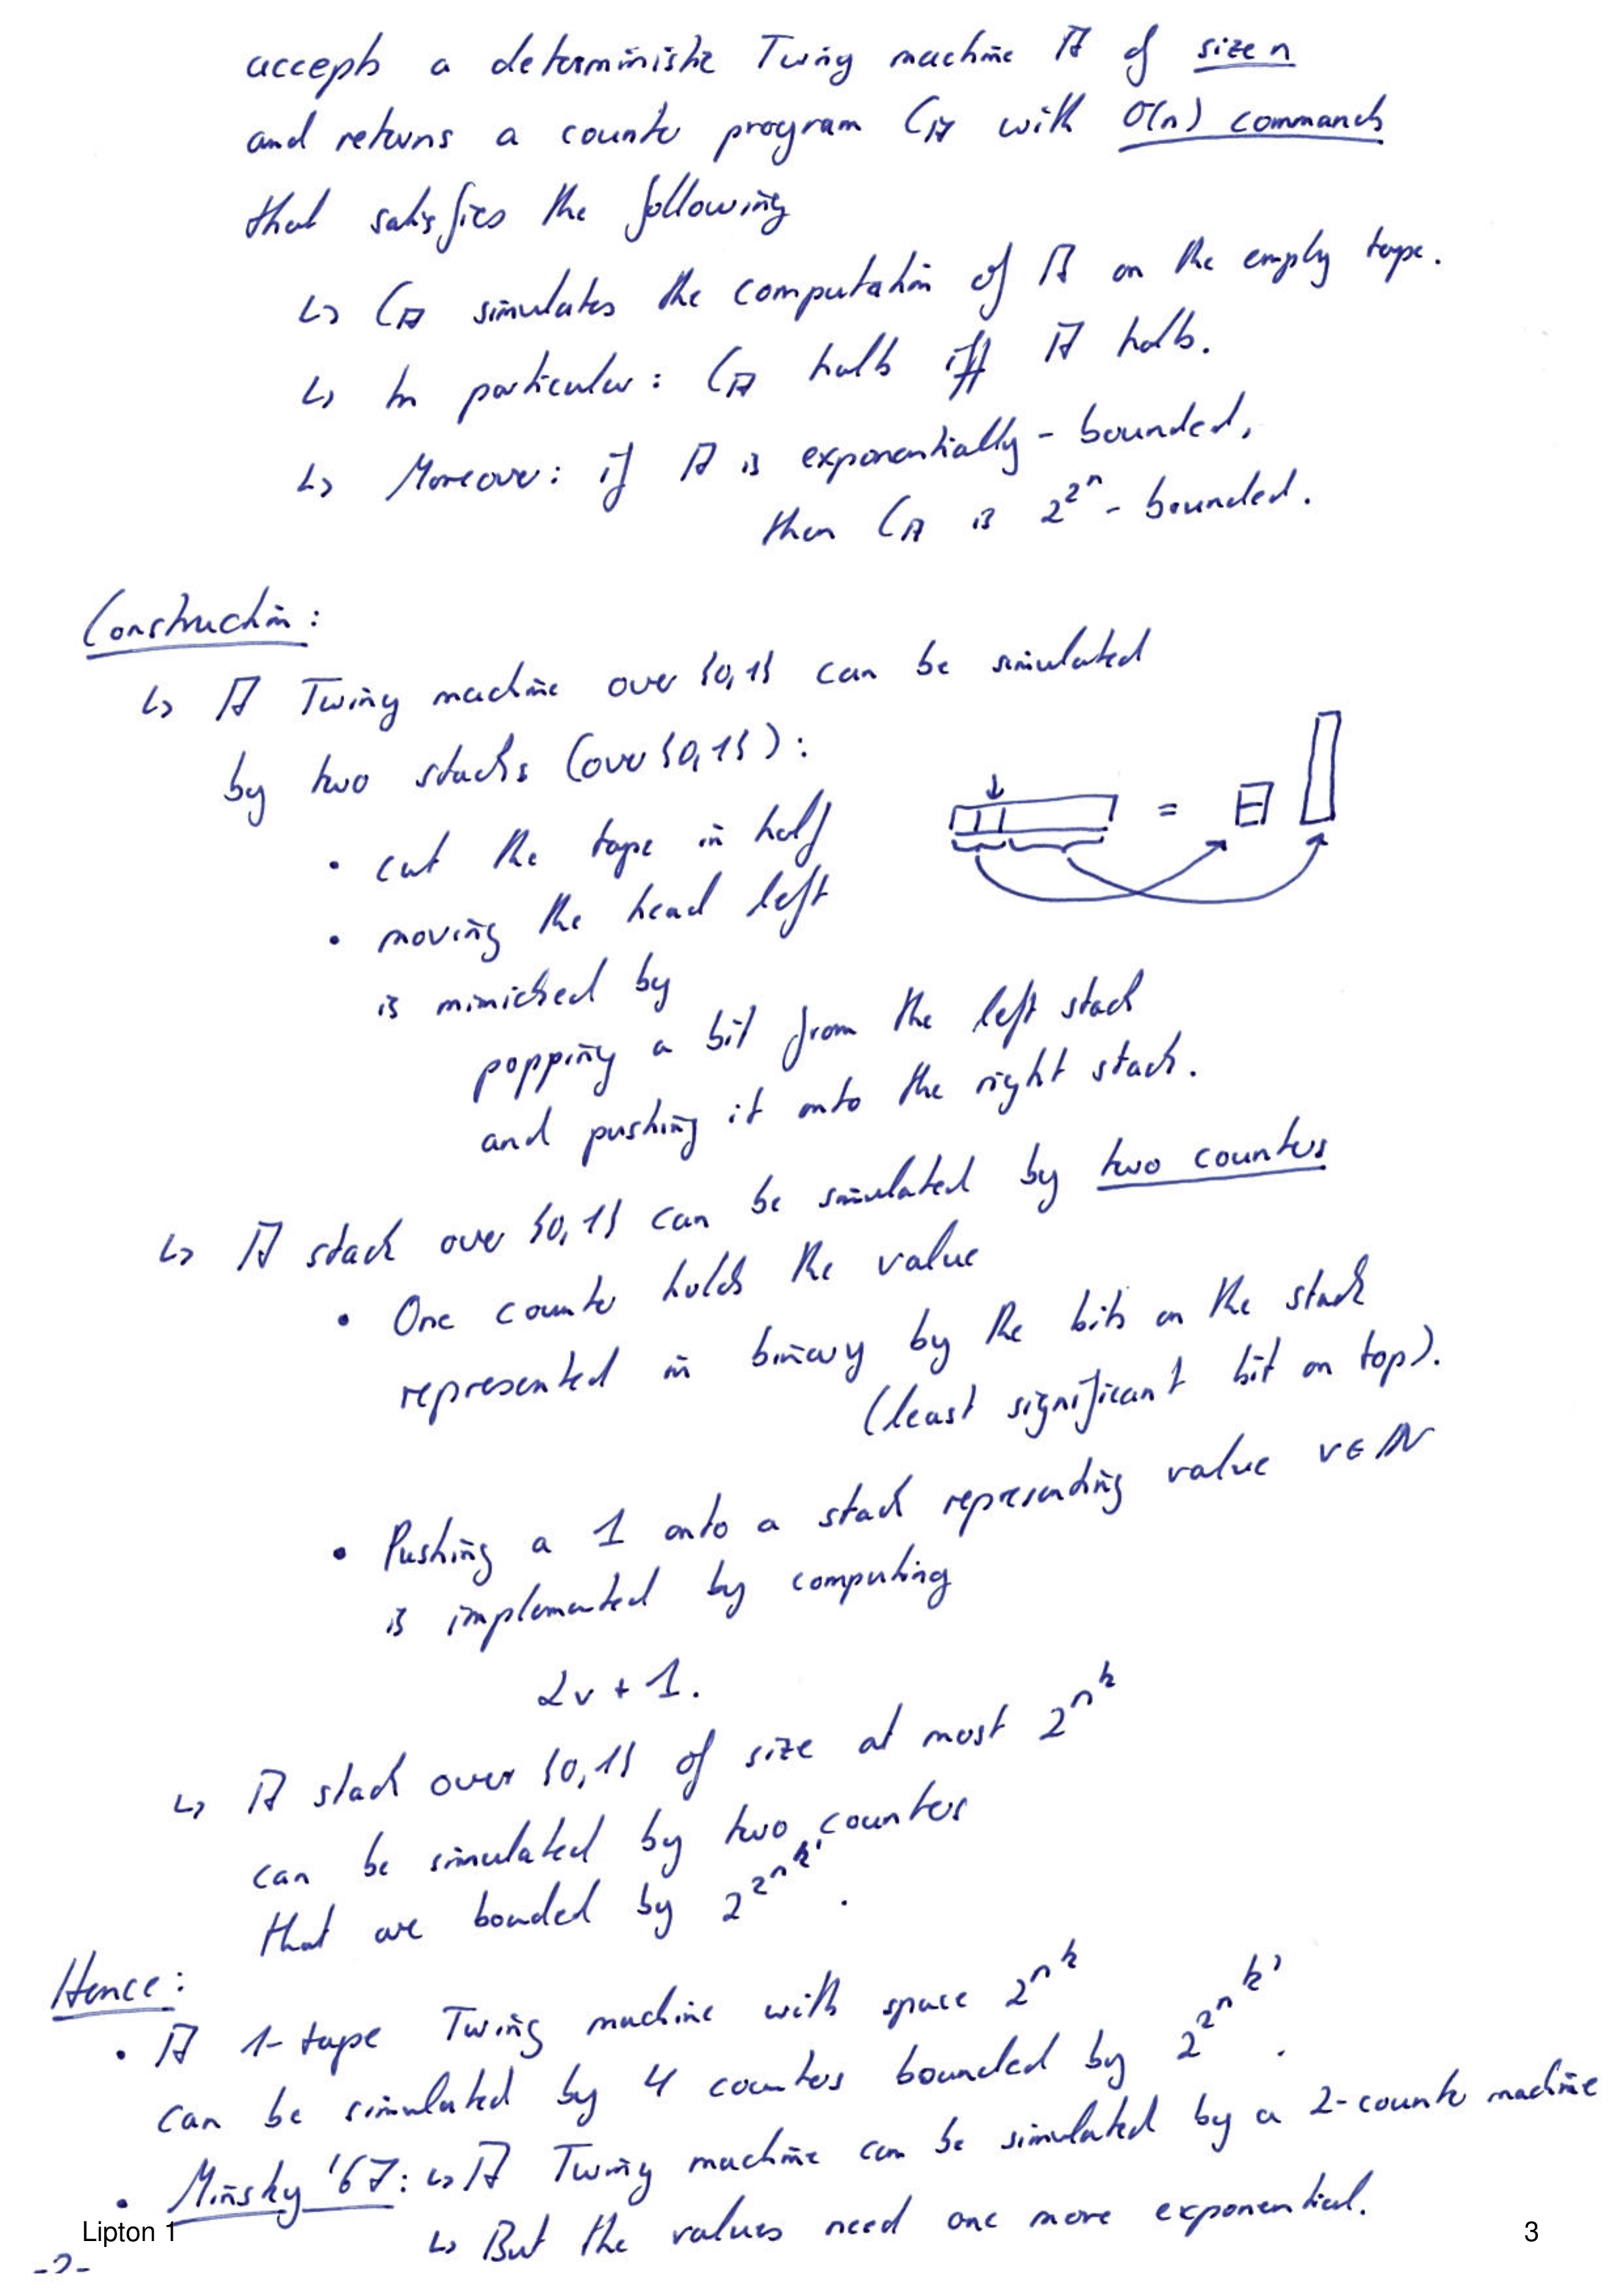 accepts a deterministic Turing machine A of size n
and returns a counter program C_A with O(n) commands
that satisfies the following
↳ C_A simulates the computation of A on the empty tape.
↳ In particular: C_A halts iff A halts.
↳ Moreover: if A is exponentially-bounded,
then C_A is 2^{2^n}-bounded.
Construction:
↳ A Turing machine over {0,1} can be simulated
by two stacks (over {0,1}):
• cut the tape in half
=
• moving the head left
is mimicked by
popping a bit from the left stack
and pushing it onto the right stack.
↳ A stack over {0,1} can be simulated by two counters
• One counter holds the value
represented in binary by the bits on the stack
(least significant bit on top).
• Pushing a 1 onto a stack representing value v∈ℕ
is implemented by computing
2v + 1.
↳ A stack over {0,1} of size at most 2^{n^k}
can be simulated by two counters
that are bounded by 2^{2^{n^{k'}}}.
Hence:
• A 1-tape Turing machine with space 2^{n^k}
can be simulated by 4 counters bounded by 2^{2^{n^{k'}}}.
• Minsky '67: ↳ A Turing machine can be simulated by a 2-counter machine
↳ But the values need one more exponential.
Lipton 1
3
-2-